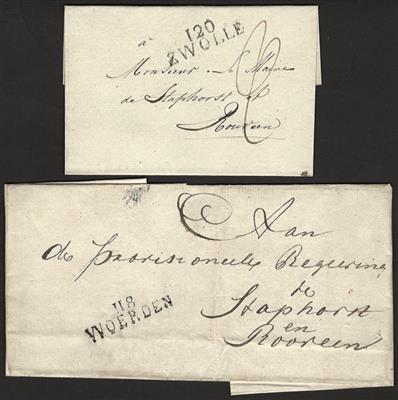 120
ZWOLLE
a
Monsieur Le Maire
de Staphorst et
Rouveen
Aan
de provisioneele Regeering
te
Staphorst
en
Rooveen
118
WOERDEN